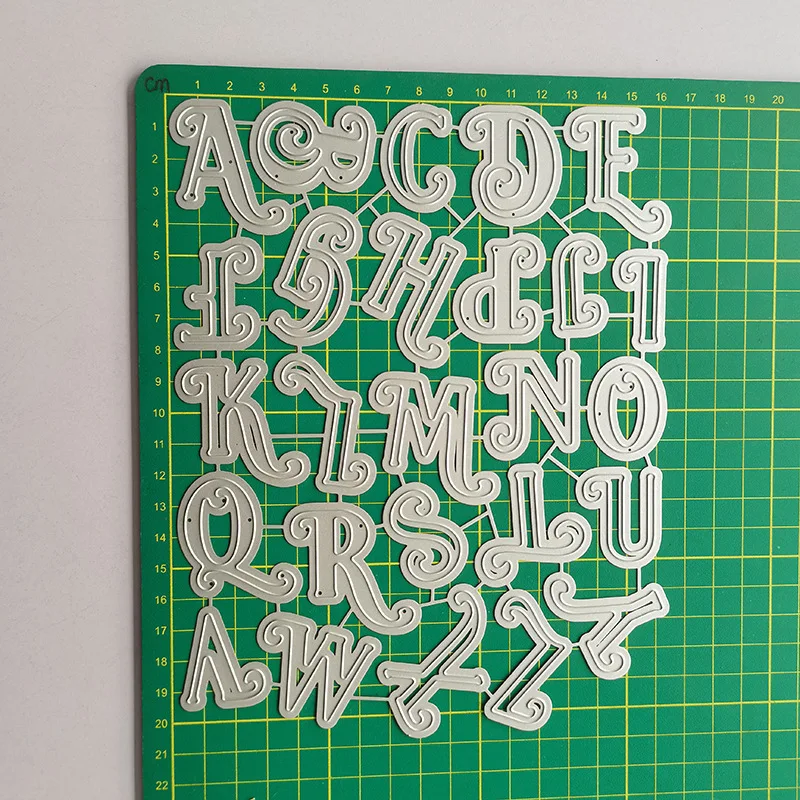 cm 1 2 3 4 5 6 7 8 9 10 11 12 13 14 15 16 17 18 19 20
1
2
3
4
5
6
7
8
9
10
11
12
13
14
15
16
17
18
19
20
21
22
A B C D E
F G H P J I
K L M N O
Q R S T U
V W X Z Y